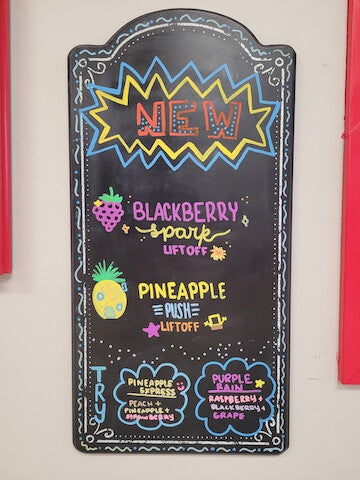 NEW
BLACKBERRY
spark
LIFTOFF
PINEAPPLE
PUSH
LIFTOFF
TRY
PINEAPPLE
EXPRESS
PEACH +
PINEAPPLE +
STRAWBERRY
PURPLE
RAIN
RASPBERRY +
BLACKBERRY +
GRAPE